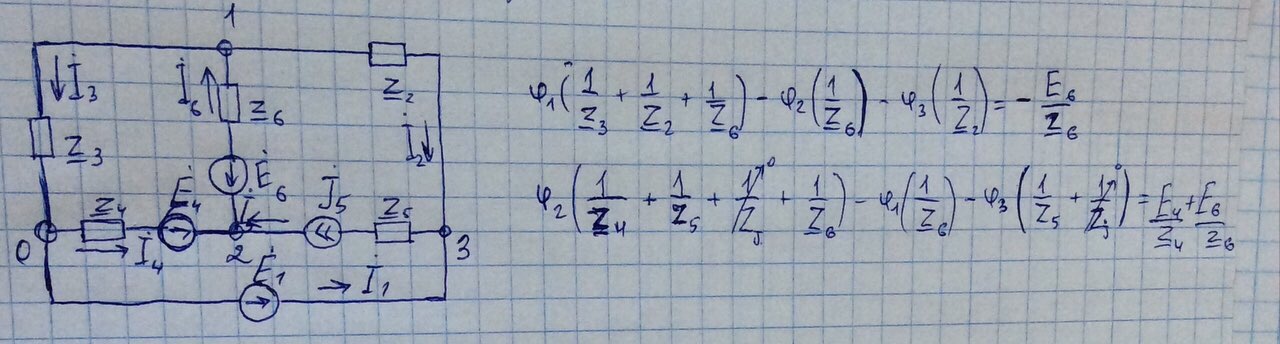 1
İ₃
İ₆
Z₆
Z₂
İ₂
Z₃
Ė₆
Z₄
Ė₄
J̇₅
Z₅
0
İ₄
2
3
Ė₁
İ₁
φ₁(1/Z₃ + 1/Z₂ + 1/Z₆) - φ₂(1/Z₆) - φ₃(1/Z₂) = - E₆/Z₆
φ₂(1/Z₄ + 1/Z₅ + 1/Zⱼ→0 + 1/Z₆) - φ₁(1/Z₆) - φ₃(1/Z₅ + 1/Zⱼ→0) = E₄/Z₄ + E₆/Z₆